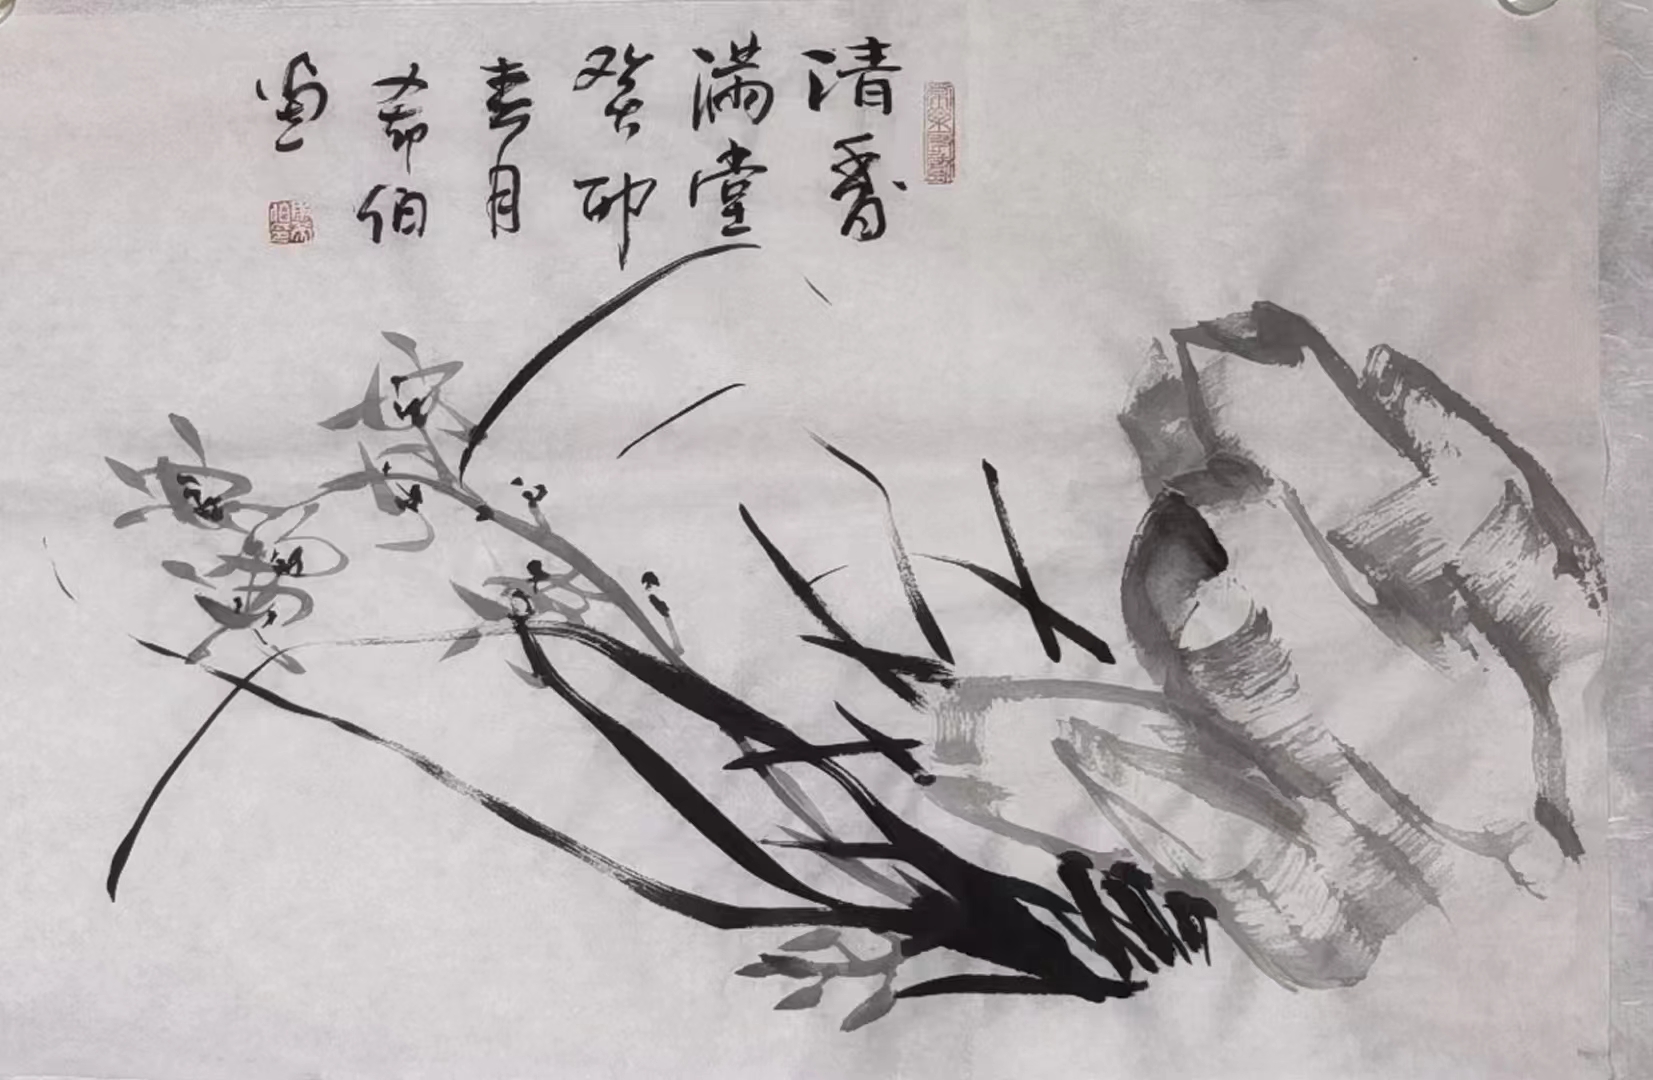 清香
满堂
癸卯
春月
希伯
画